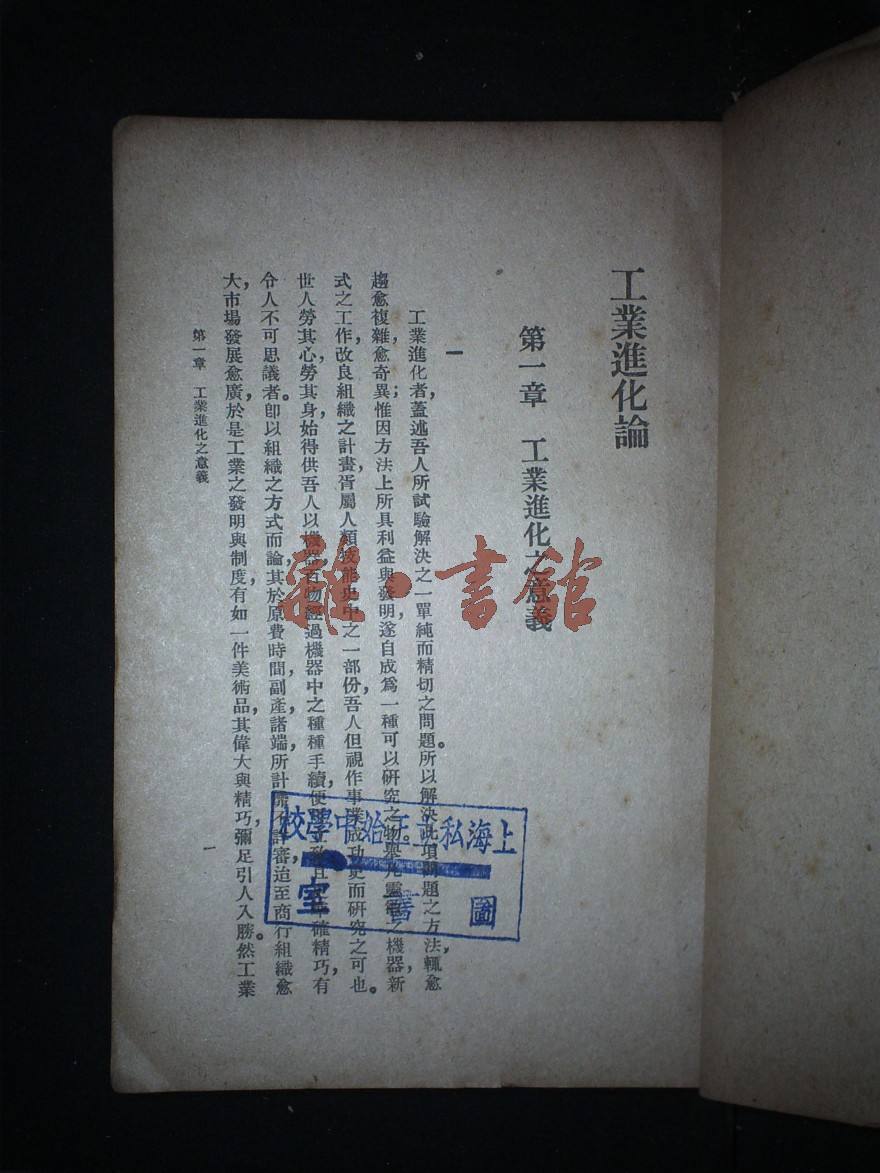 工業進化論
第一章　工業進化之意義
一
工業進化者，蓋述吾人所試驗解決之一單純而精切之問題。所以解決此項問題之方法，輒愈
趨愈複雜，愈奇異；惟因方法上所具利益與發明，遂自成爲一種可以研究之物。舉凡靈之機器，新
式之工作，改良組織之計畫，胥屬人類技能史中之一部份，吾人但視作事業成功史而研究之可也。
世人勞其心，勞其身，始得供吾人以機器，百物經過機器中之種種手續，便且確精巧，有
令人不可思議者。卽以組織之方式而論，其於原費時間副產諸端，所計審，迨至商行組織愈
大，市場發展愈廣，於是工業之發明與制度，有如一件美術品，其偉大與精巧，彌足引人入勝。然工業
第一章　工業進化之意義
一
上海私立正始中學校
圖書室
雜·書館